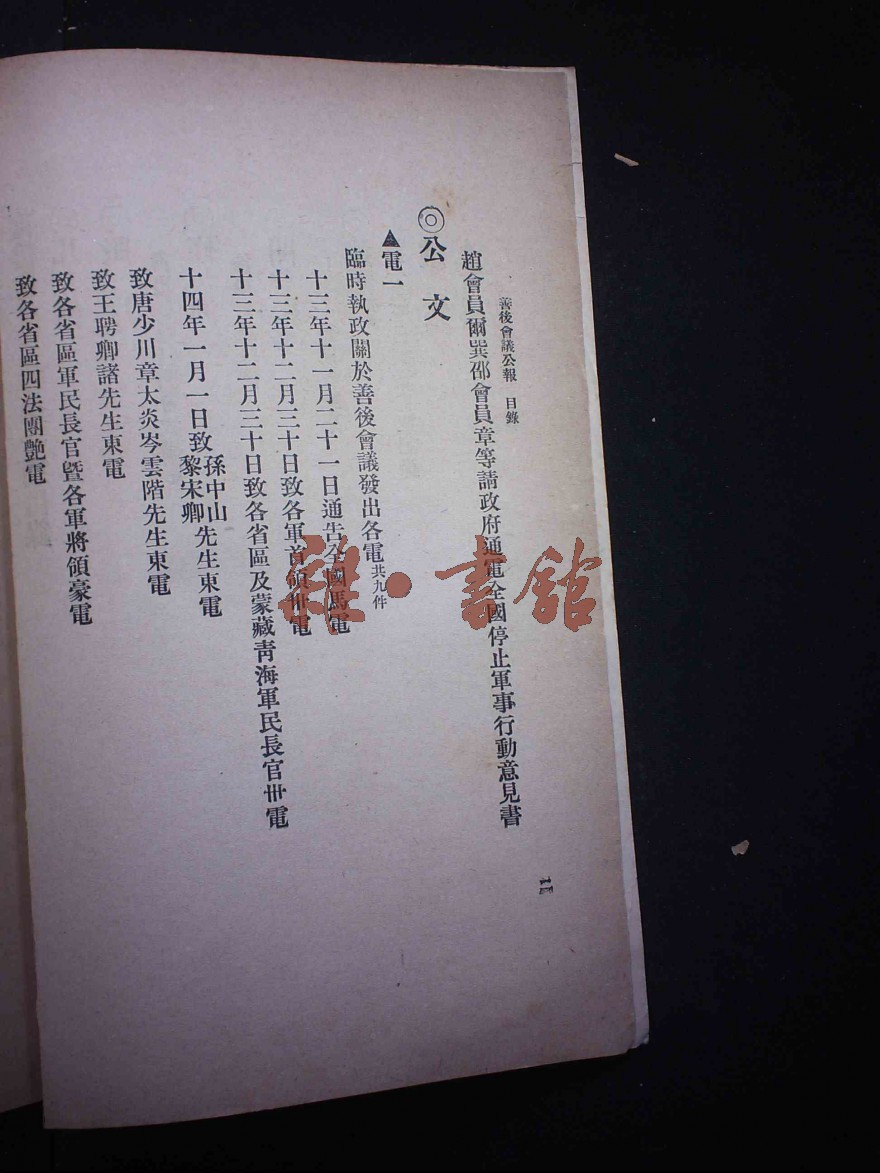 善後會議公報　目錄
趙會員爾巽邵會員章等請政府通電全國停止軍事行動意見書
◎公文
▲電一
臨時執政關於善後會議發出各電共九件
十三年十一月二十一日通告全國馬電
十三年十二月三十日致各軍首領卅電
十三年十二月三十日致各省區及蒙藏靑海軍民長官卅電
十四年一月一日致孫中山黎宋卿先生東電
致唐少川章太炎岑雲階先生東電
致王聘卿諸先生東電
致各省區軍民長官曁各軍將領豪電
致各省區四法團艷電
雜·書館